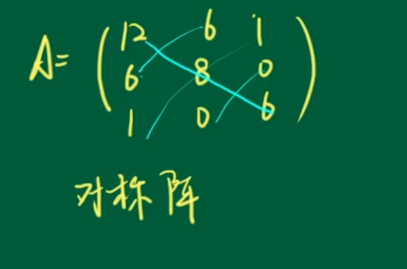 A= ( 12 6 1
6 8 0
1 0 6 )
对称阵